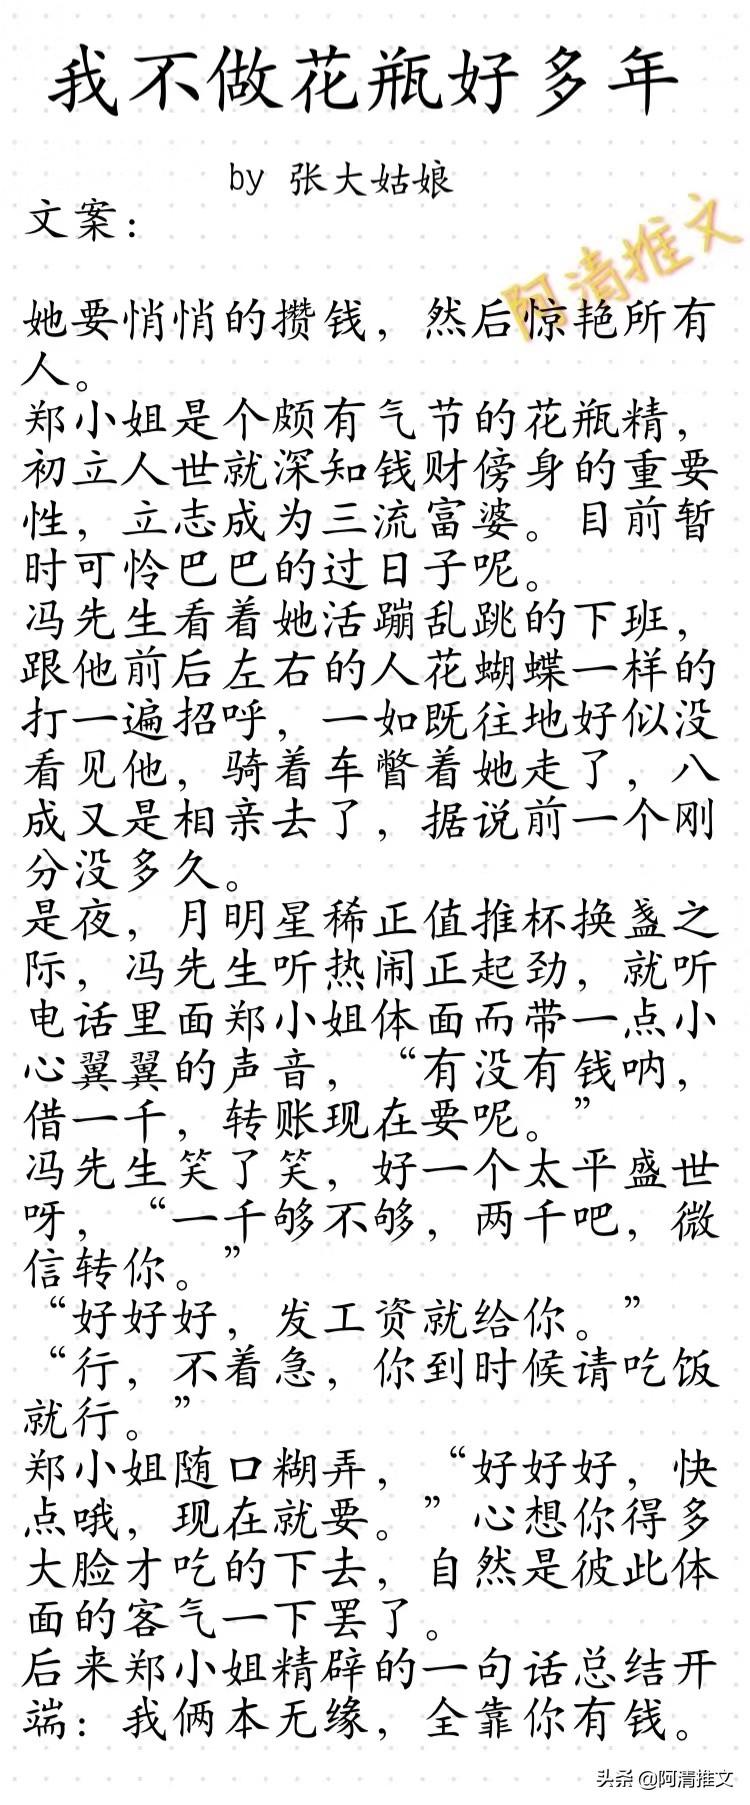 我不做花瓶好多年
by 张大姑娘
文案：
阿清推文
她要悄悄的攒钱，然后惊艳所有
人。
郑小姐是个颇有气节的花瓶精，
初立人世就深知钱财傍身的重要
性，立志成为三流富婆。目前暂
时可怜巴巴的过日子呢。
冯先生看着她活蹦乱跳的下班，
跟他前后左右的人花蝴蝶一样的
打一遍招呼，一如既往地好似没
看见他，骑着车瞥着她走了，八
成又是相亲去了，据说前一个刚
分没多久。
是夜，月明星稀正值推杯换盏之
际，冯先生听热闹正起劲，就听
电话里面郑小姐体面而带一点小
心翼翼的声音，“有没有钱呐，
借一千，转账现在要呢。”
冯先生笑了笑，好一个太平盛世
呀，“一千够不够，两千吧，微
信转你。”
“好好好，发工资就给你。”
“行，不着急，你到时候请吃饭
就行。”
郑小姐随口糊弄，“好好好，快
点哦，现在就要。”心想你得多
大脸才吃的下去，自然是彼此体
面的客气一下罢了。
后来郑小姐精辟的一句话总结开
端：我俩本无缘，全靠你有钱。
头条 @阿清推文